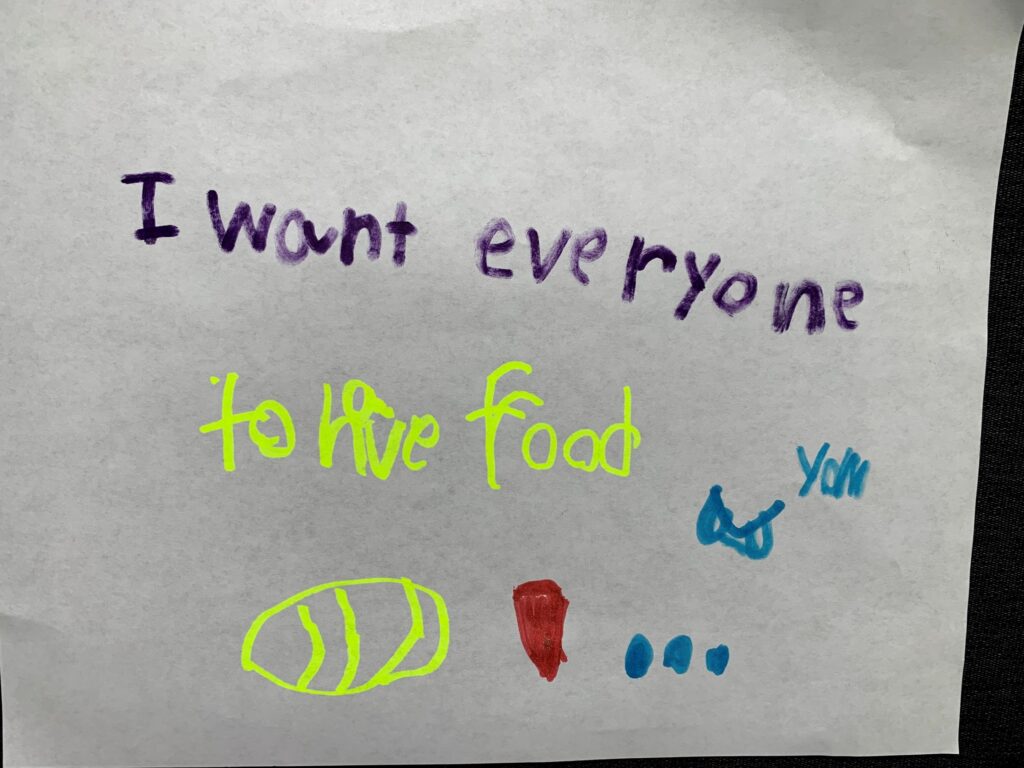 I want everyone
to have food
yom